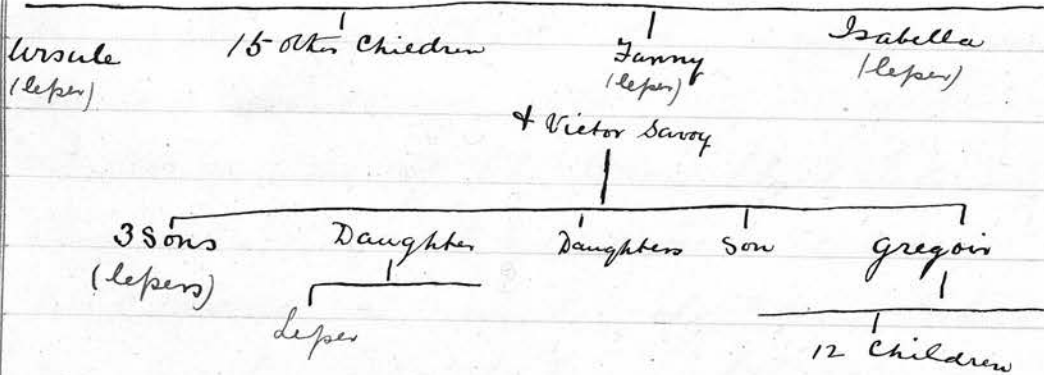 Ursule
(leper)
15 other Children
Fanny
(leper)
Isabella
(leper)
+ Victor Savoy
3 Sons
(lepers)
Daughter
Daughters
Son
Gregoir
Leper
12 Children